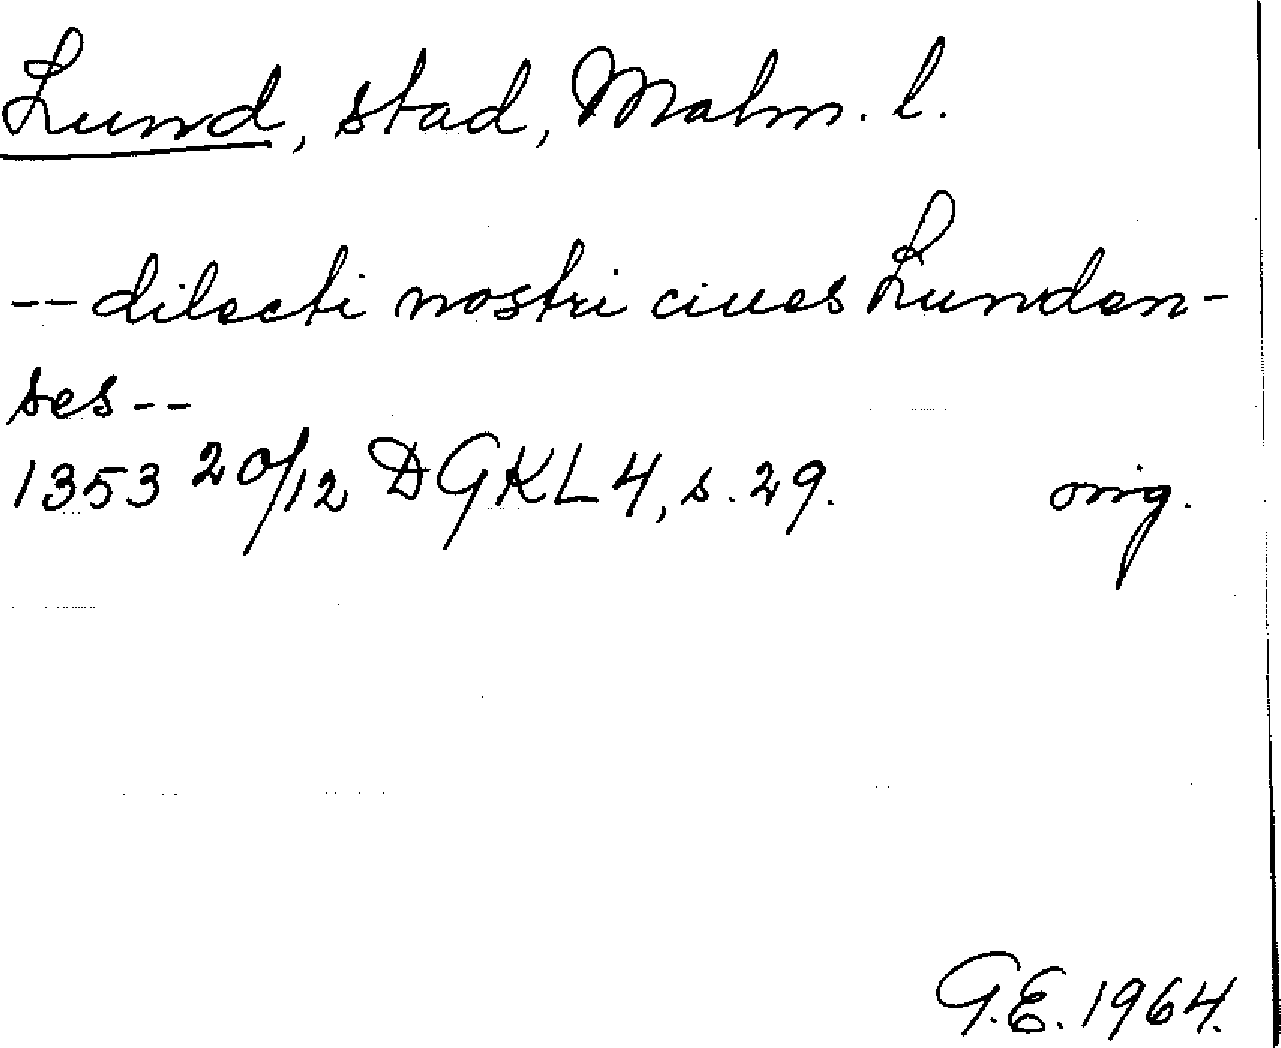 Lund, stad, Malm. l.
-- dilecti nostri ciues Lunden-
ses --
1353 20/12 DGKL 4, s. 29. orig.
G.E. 1964.